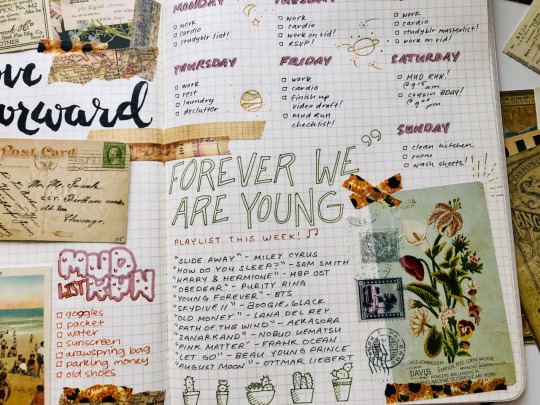 ove
forward
Post Card
Chicago.
MUD
RUN
LIST
goggles
packet
water
sunscreen
drawstring bag
parking money
old shoes
MONDAY
work
cardio
studyblr list!
THURSDAY
work
rest
laundry
declutter
TUESDAY
work
cardio
work on vid!
RSVP!
FRIDAY
work
cardio
finish up
video draft!
Mud Run
checklist!
work
cardio
studyblr masterlist!
work on vid!
SATURDAY
MUD RUN!
cousin BDAY!
pm
SUNDAY
clean kitchen
room
wash sheets!
FOREVER WE
ARE YOUNG"
PLAYLIST THIS WEEK!
"SLIDE AWAY" - MILEY CYRUS
"HOW DO YOU SLEEP?" - SAM SMITH
"HARRY & HERMIONE" - HBP OST
"OBEDEAR" - PURITY RING
"YOUNG FOREVER" - BTS
"SKYDIVE II" - BOOGIE, 6LACK
"OLD MONEY" - LANA DEL REY
"PATH OF THE WIND" - AEKASORA
"ZANARKAND" - NOBUO UEMATSU
"PINK MATTER" - FRANK OCEAN
"LET GO" - BEAU YOUNG PRINCE
"AUGUST MOON" - OTTMAR LIEBERT
DAVIS